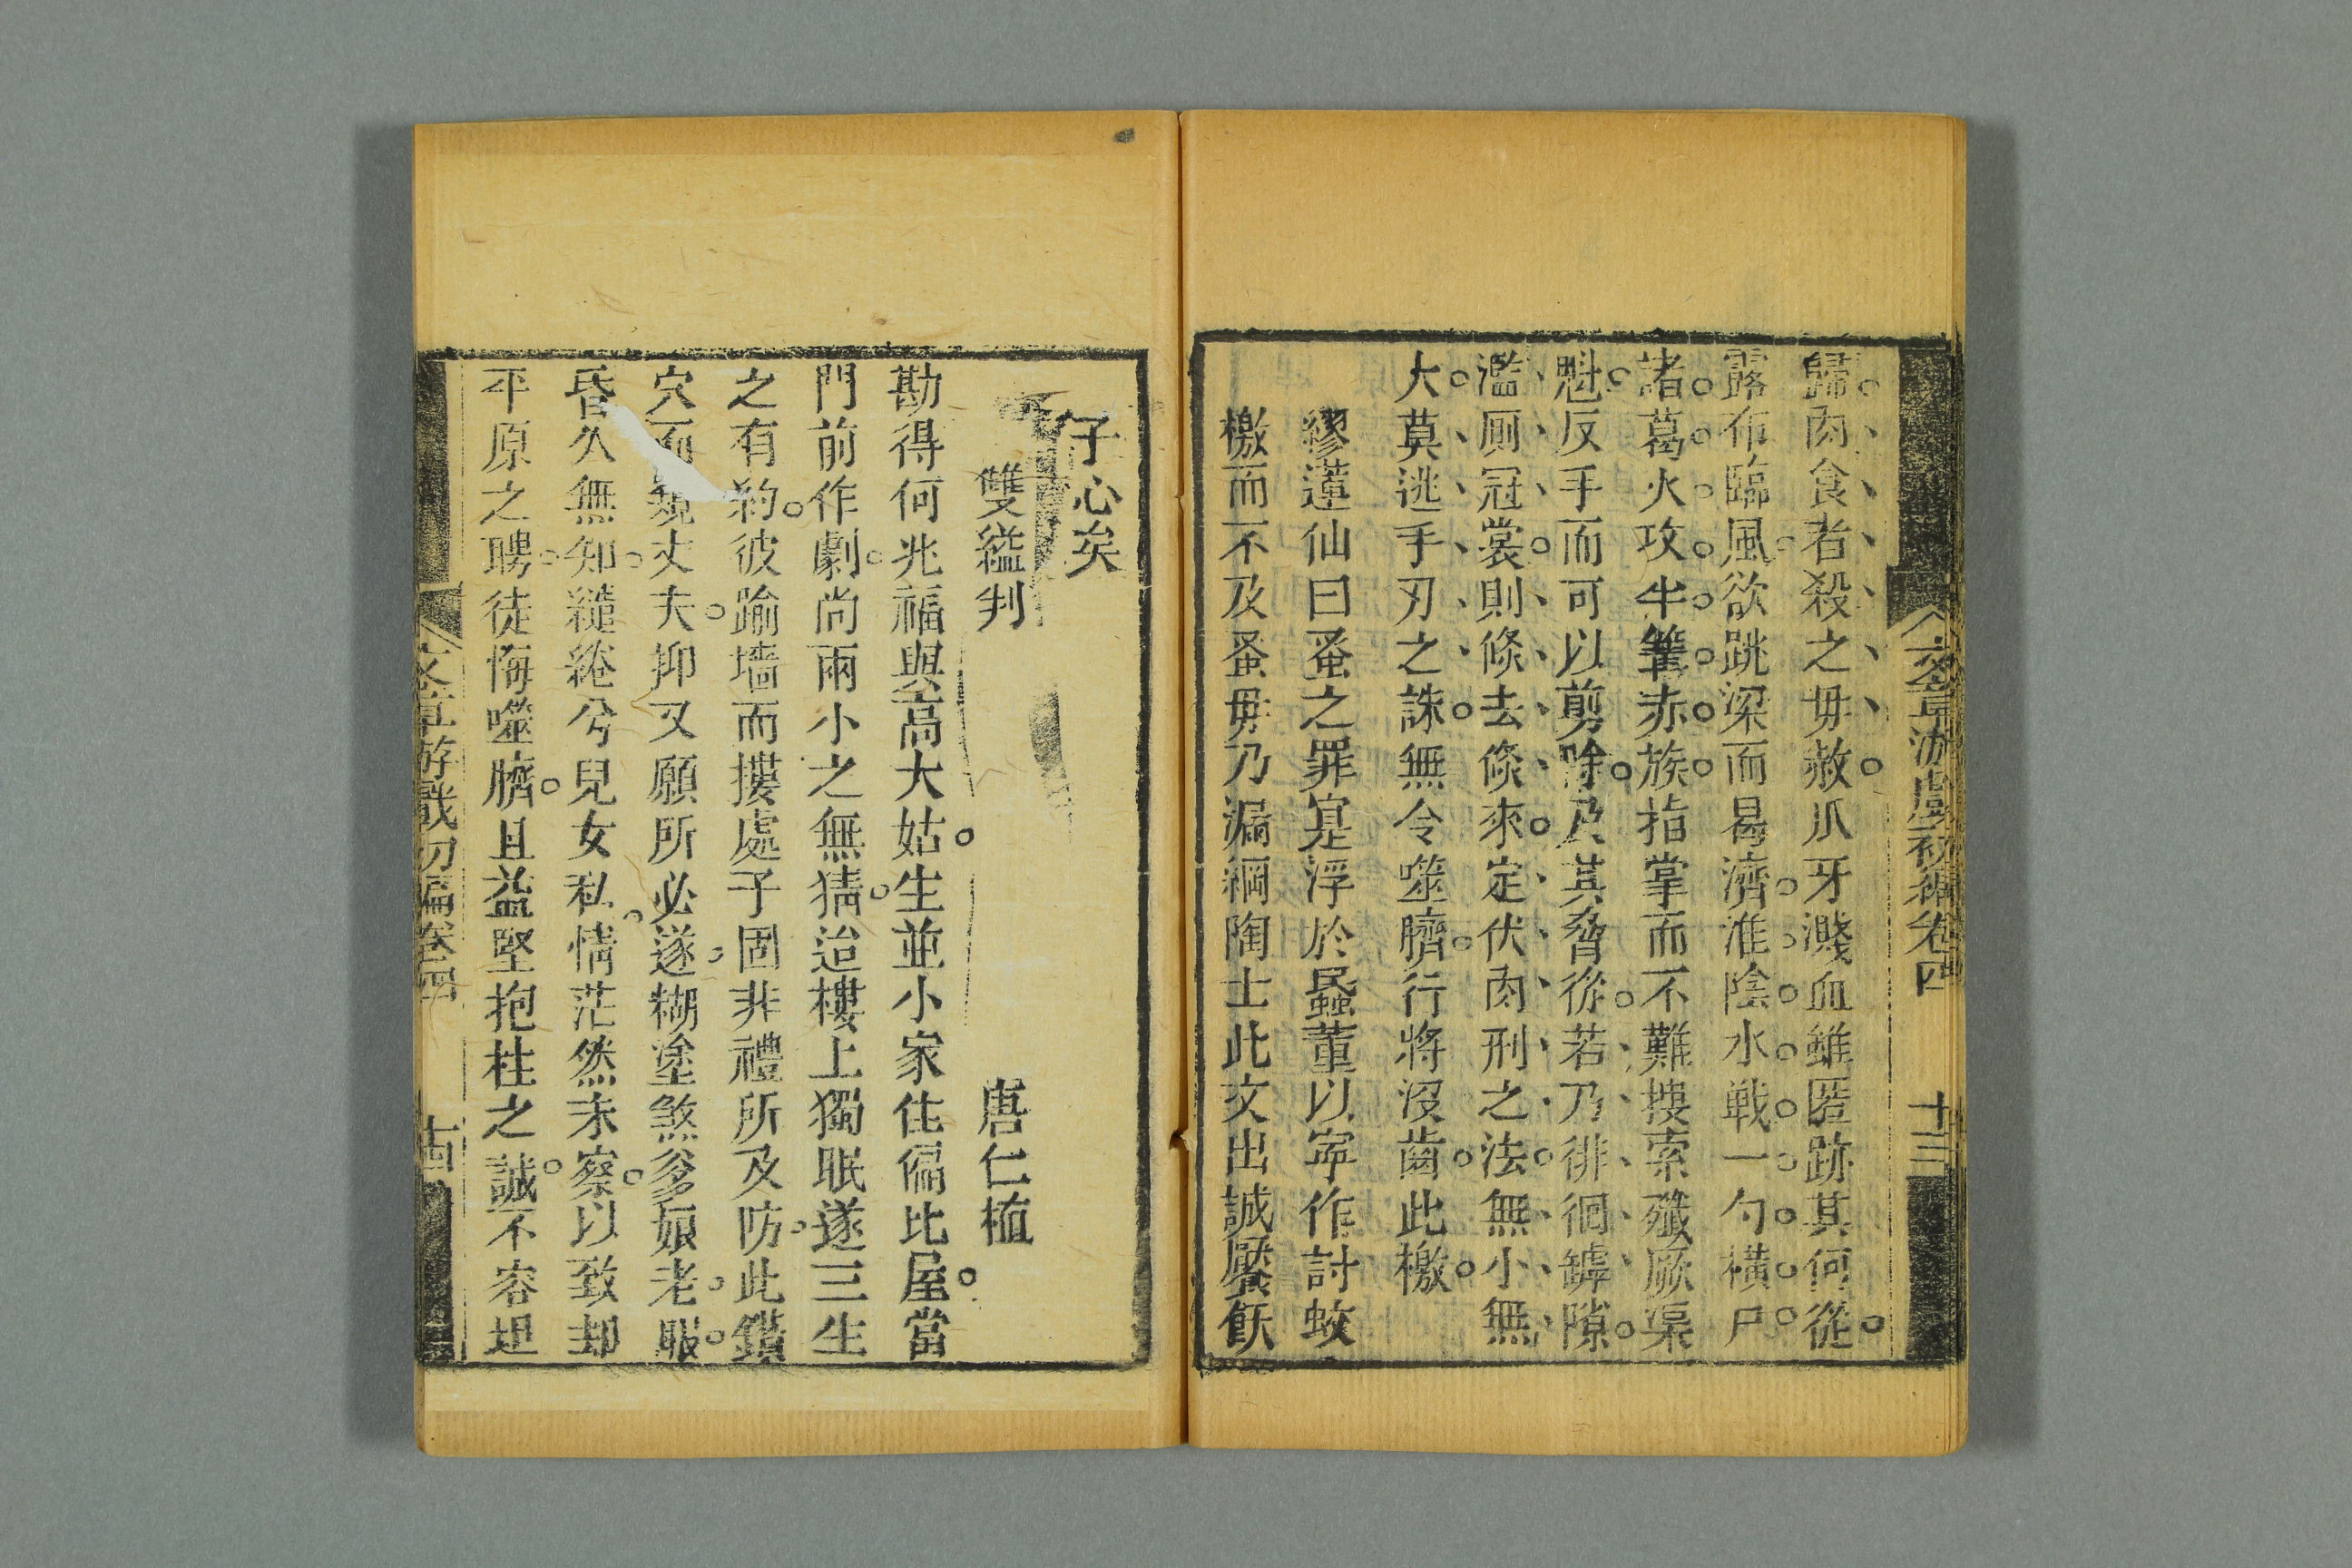 文章游戲初編卷四 十三
歸肉食者殺之毋赦爪牙濺血雖匿跡其何從
露布臨風欲跳梁而曷濟淮陰水戰一勺橫尸
諸葛火攻半篝赤族指掌而不難摟索殲厥渠
魁反手而可以剪除及其脅從若乃徘徊罅隙
濫厠冠裳則倐去倐來定伏肉刑之法無小無
大莫逃手刃之誅無令噬臍行將沒齒此檄
繆蓮仙曰蚤之罪寔浮於蟁董以寧作討蚊
檄而不及蚤毋乃漏網陶士此文出誠饜飫
子心矣
雙縊判 唐仁植
勘得何兆福與高大姑生並小家住偪比屋當
門前作劇尚兩小之無猜迨樓上獨眠遂三生
之有約彼踰墻而摟處子固非禮所及防此鑽
穴而窺丈夫抑又願所必遂糊塗煞爹娘老眼
昏久無知繾綣兮兒女私情茫然未察以致却
平原之聘徒悔噬臍且益堅抱柱之誠不容坦
文章游戲初編卷四 十四